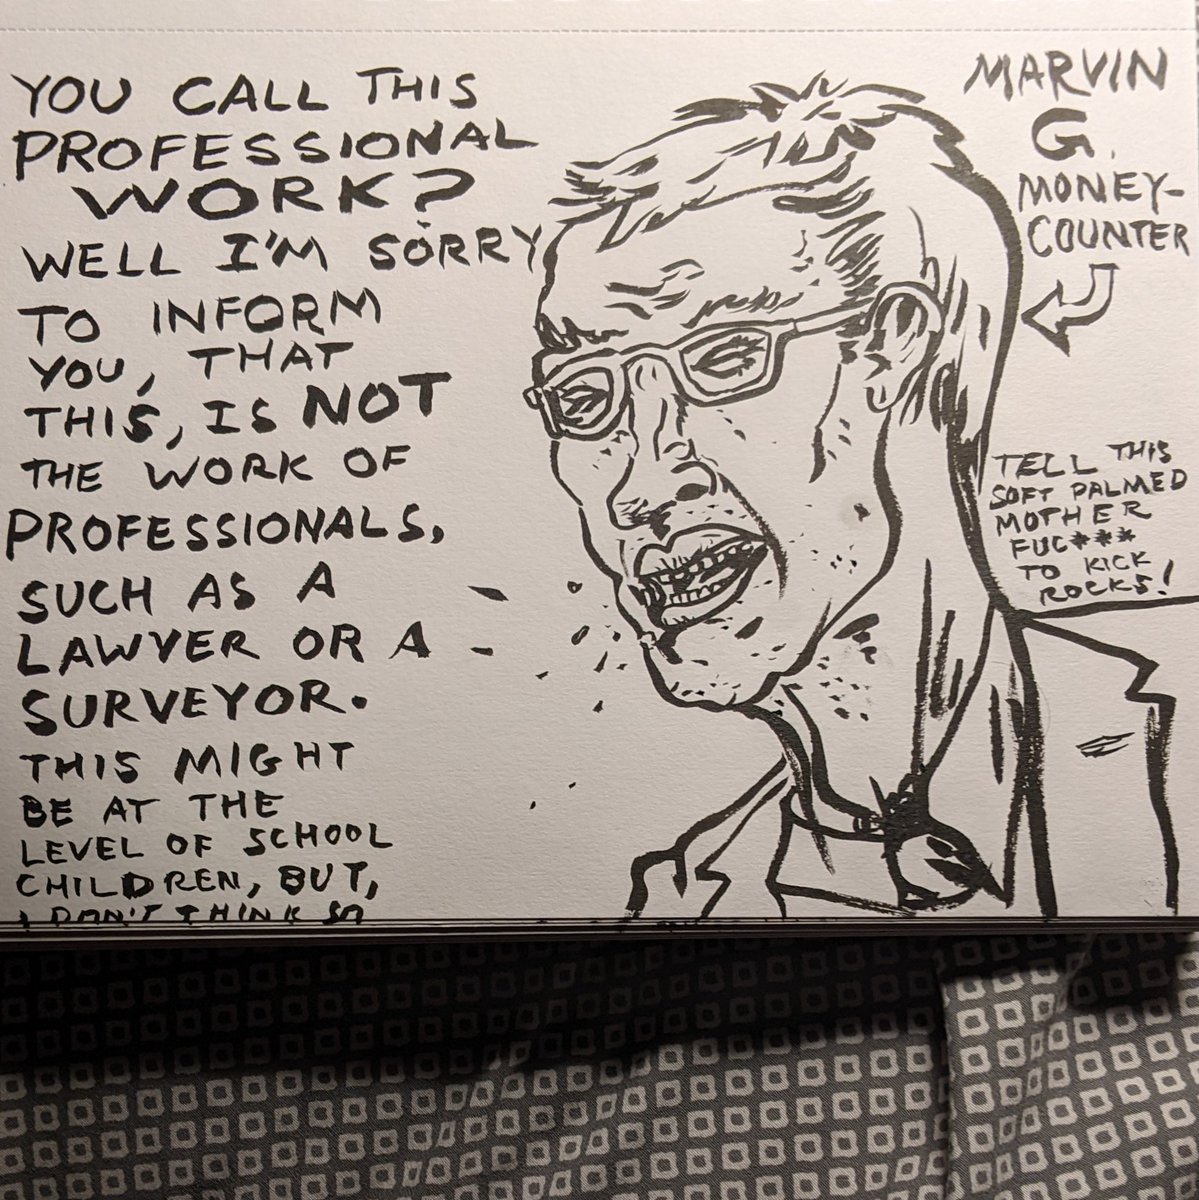 YOU CALL THIS
PROFESSIONAL
WORK?
WELL I'M SORRY
TO INFORM
YOU, THAT
THIS, IS NOT
THE WORK OF
PROFESSIONALS,
SUCH AS A
LAWYER OR A
SURVEYOR.
THIS MIGHT
BE AT THE
LEVEL OF SCHOOL
CHILDREN, BUT,
I DON'T THINK SO
MARVIN
G.
MONEY-
COUNTER
TELL THIS
SOFT PALMED
MOTHER
FUC***
TO KICK
ROCKS!